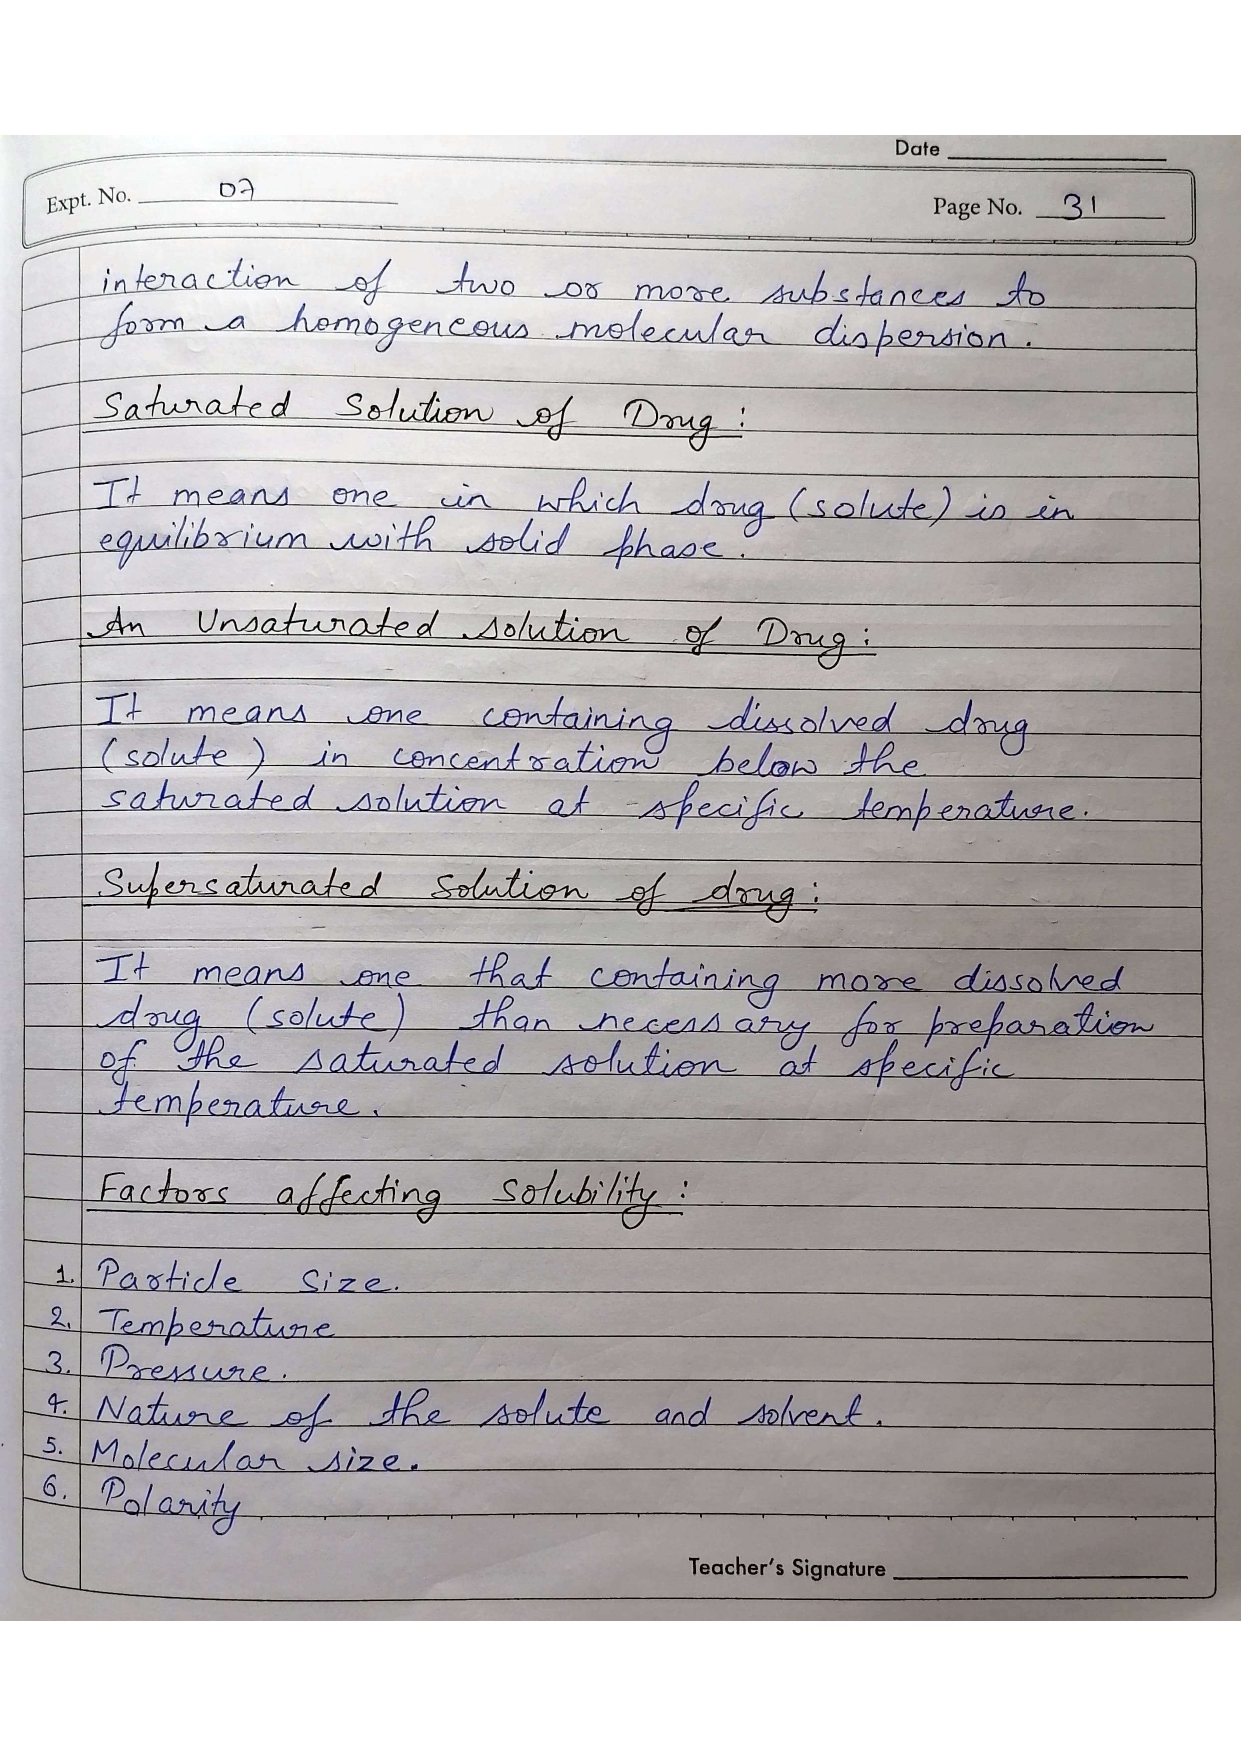 Date
Expt. No. 07
Page No. 31
interaction of two or more substances to
form a homogeneous molecular dispersion.
Saturated Solution of Drug:
It means one in which drug (solute) is in
equilibrium with solid phase.
An Unsaturated solution of Drug:
It means one containing dissolved drug
(solute) in concentration below the
saturated solution at specific temperature.
Supersaturated Solution of drug:
It means one that containing more dissolved
drug (solute) than necessary for preparation
of the saturated solution at specific
temperature.
Factors affecting Solubility:
1. Particle Size.
2. Temperature
3. Pressure.
4. Nature of the solute and solvent.
5. Molecular size.
6. Polarity
Teacher's Signature